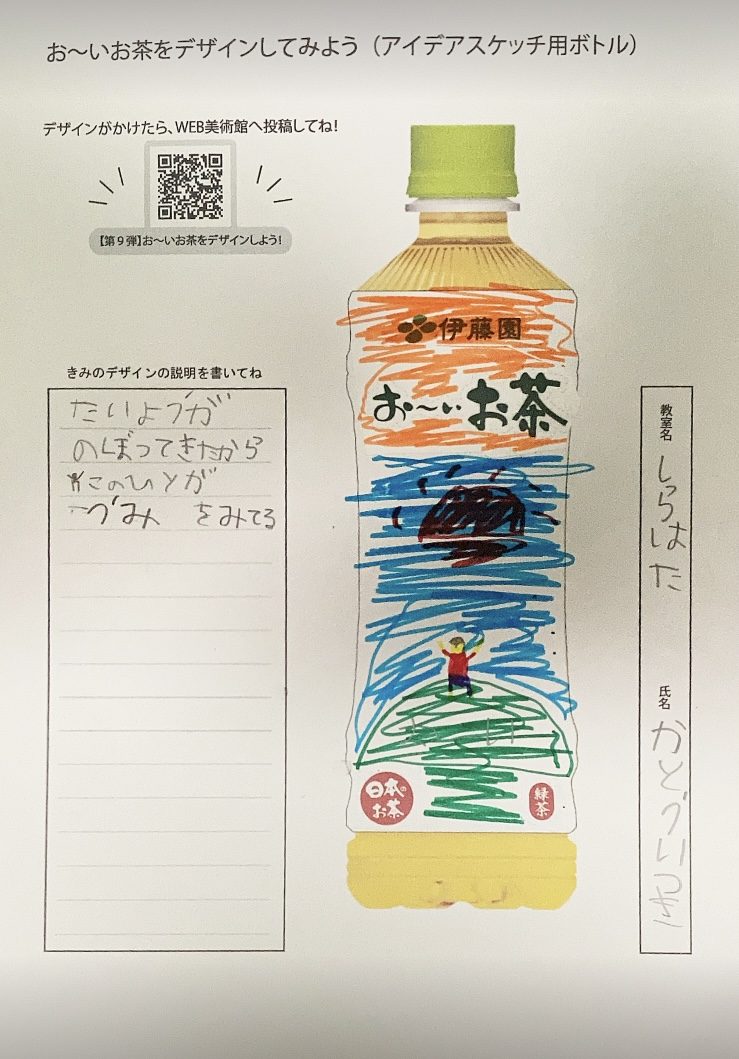 お〜いお茶をデザインしてみよう（アイデアスケッチ用ボトル）
デザインがかけたら、WEB美術館へ投稿してね！
【第９弾】お〜いお茶をデザインしよう！
きみのデザインの説明を書いてね
たいようが
のぼってきたから
このひとが
うみ をみてる
伊藤園
お〜いお茶
日本のお茶
緑茶
教室名
しらはた
氏名